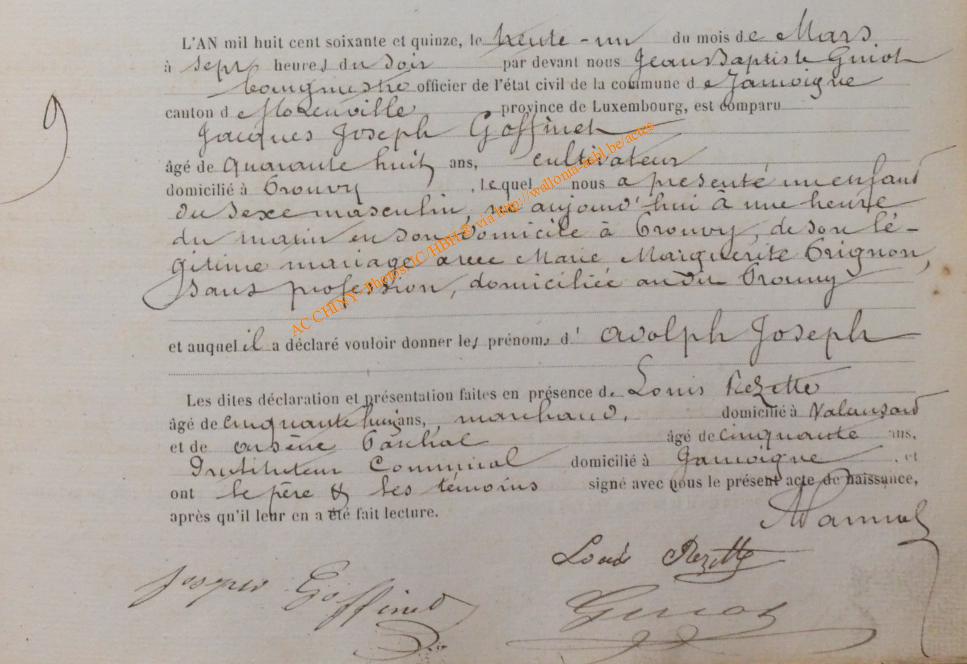 L'AN mil huit cent soixante et quinze, le trente-un du mois de Mars
à sept heures du soir par devant nous Jean Baptiste Guiot
bourgmestre officier de l'état civil de la commune de Jamoigne
canton d province de Luxembourg, est comparu
Jacques Joseph Goffinet
âgé de quarante huit ans, cultivateur
domicilié à Prouvy, lequel nous a présenté un enfant
du sexe masculin, né aujourd'hui à une heure
du matin en son domicile à Prouvy, de son lé-
gitime mariage avec Marie Marguerite Grignon,
sans profession, domiciliée audit Prouvy
et auquel il a déclaré vouloir donner les prénoms d' Adolph Joseph
Les dites déclaration et présentation faites en présence de Louis Rezette
âgé de cinquante huit ans, marchand, domicilié à Valansart
et de Arsène âgé de cinquante ans,
Instituteur Communal domicilié à Jamoigne et
ont le père & les témoins signé avec nous le présent acte de naissance,
après qu'il leur en a été fait lecture.
Louis Rezette
Joseph Goffinet
Guiot
9
AC CHINY - Photos IC/HBH © via http://wallonia-asbl.be/actes